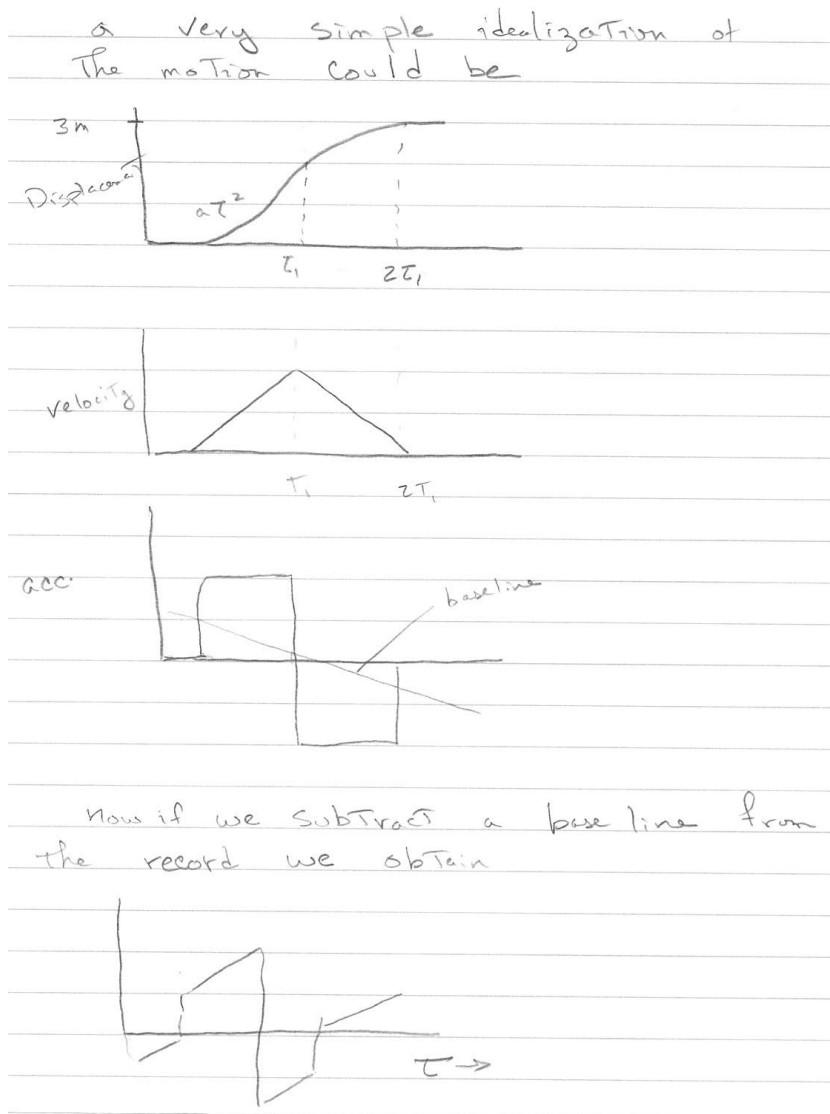 a very simple idealization of
The motion could be
3m
Displacement
aτ²
τ₁ 2τ₁
velocity
T₁ 2T₁
acc.
baseline
Now if we subtract a base line from
the record we obtain
τ →